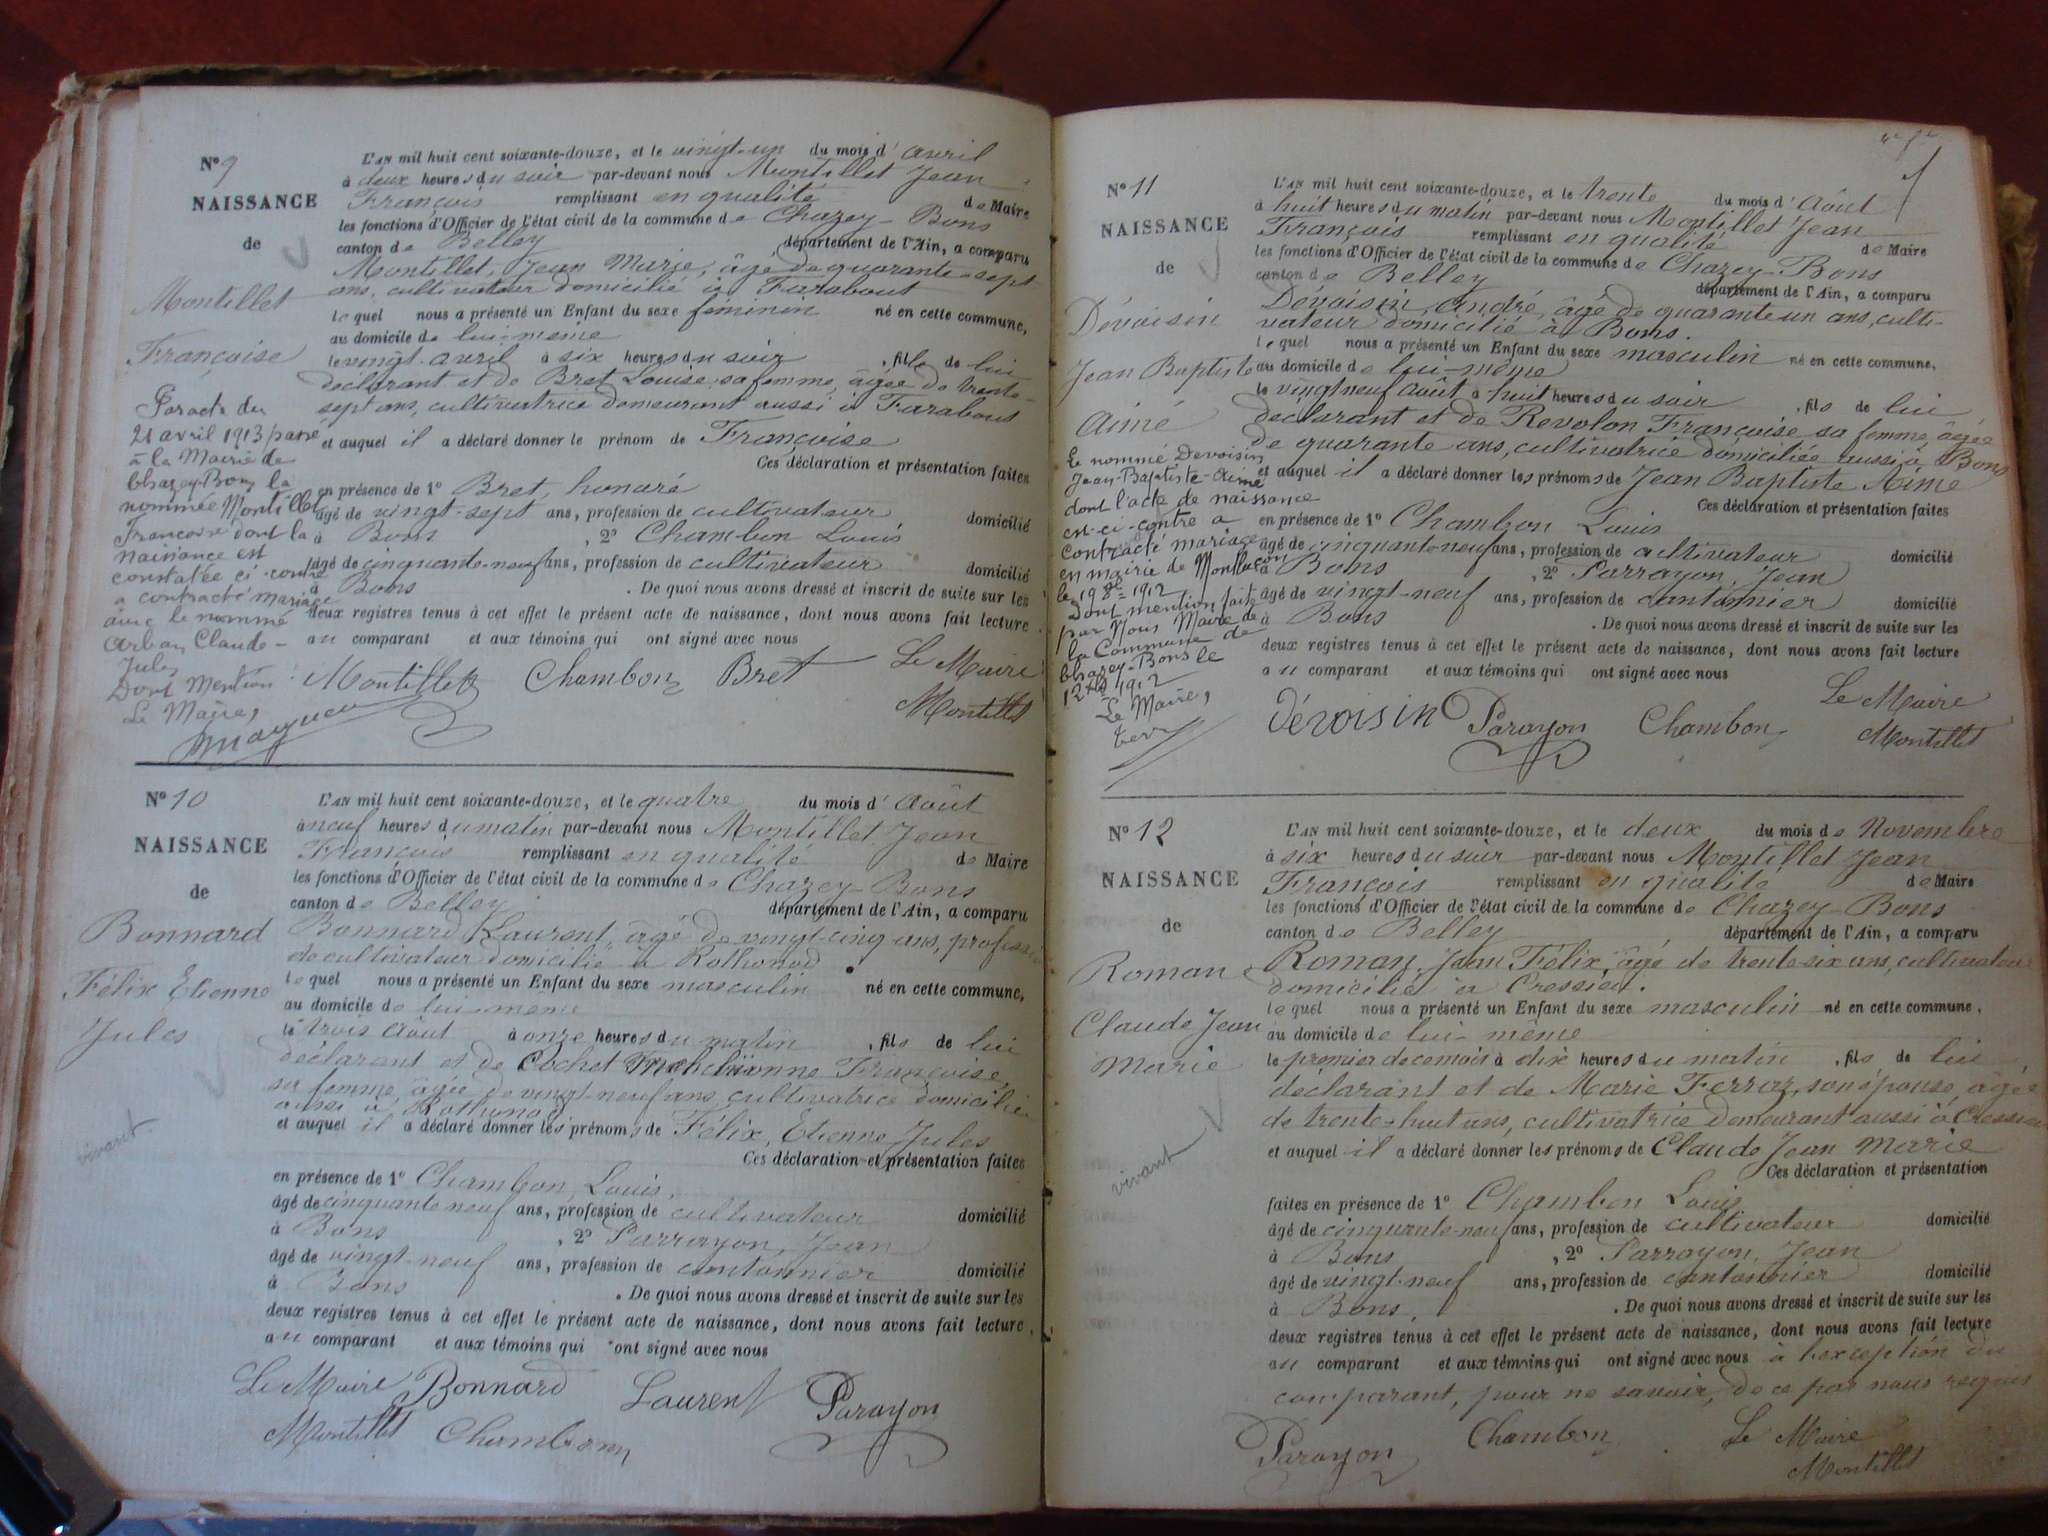 N° 9
NAISSANCE
de
Montillet
Françoise
Par acte du
21 avril 1913 passé
à la Mairie de
Chazey-Bons la
nommée Montillet
Françoise dont la
naissance est
constatée ci-contre
a contracté mariage
avec le nommé
Arban Claude-
Jules
Dont Mention
Le Maire,
L'AN mil huit cent soixante-douze, et le vingt-un du mois d'avril
à deux heures du soir par-devant nous Montillet Jean
François remplissant en qualité de Maire
les fonctions d'Officier de l'état civil de la commune de Chazey-Bons
canton de Belley département de l'Ain, a comparu
Montillet, Jean Marie, âgé de quarante-sept
ans, cultivateur domicilié à Farabout
lequel nous a présenté un Enfant du sexe féminin né en cette commune,
au domicile de lui-même
le vingt avril à six heures du soir , fille de lui
déclarant et de Bret Louise, sa femme, âgée de trente-
sept ans, cultivatrice demeurant aussi à Farabout
et auquel il a déclaré donner le prénom de Françoise
Ces déclaration et présentation faites
en présence de 1° Bret, honoré
âgé de vingt-sept ans, profession de cultivateur domicilié
à Bons , 2° Chambon Louis
âgé de cinquante-neuf ans, profession de cultivateur domicilié
à Bons . De quoi nous avons dressé et inscrit de suite sur les
deux registres tenus à cet effet le présent acte de naissance, dont nous avons fait lecture
au comparant et aux témoins qui ont signé avec nous
Montillet Chambon Bret Le Maire
Montillet
N° 10
NAISSANCE
de
Bonnard
Félix Etienne
Jules
vivant
L'AN mil huit cent soixante-douze, et le quatre du mois d'Août
à neuf heures du matin par-devant nous Montillet Jean
François remplissant en qualité de Maire
les fonctions d'Officier de l'état civil de la commune de Chazey-Bons
canton de Belley département de l'Ain, a comparu
Bonnard, Laurent, âgé de vingt-cinq ans, profession
de cultivateur domicilié à Rothonod
lequel nous a présenté un Enfant du sexe masculin né en cette commune,
au domicile de lui-même
le trois Août à onze heures du matin , fils de lui
déclarant et de Cochet Françoise,
sa femme, âgée de vingt-neuf ans, cultivatrice domiciliée
aussi à Rothonod
et auquel il a déclaré donner les prénoms de Félix, Etienne, Jules
Ces déclaration et présentation faites
en présence de 1° Chambon, Louis,
âgé de cinquante neuf ans, profession de cultivateur domicilié
à Bons , 2° Parrayon, Jean
âgé de vingt-neuf ans, profession de cantonnier domicilié
à Bons . De quoi nous avons dressé et inscrit de suite sur les
deux registres tenus à cet effet le présent acte de naissance, dont nous avons fait lecture,
au comparant et aux témoins qui ont signé avec nous
Le Maire Bonnard Laurent Parayon
Montillet Chambon
N° 11
NAISSANCE
de
Dévoisin
Jean Baptiste
Aimé
Le nommé Devoisin
Jean-Baptiste-Aimé
dont l'acte de naissance
est ci-contre a
contracté mariage
en mairie de Montluçon
le 19 8bre 1912
Dont mention faite
par Nous Maire de
la Commune de
Chazey-Bons le
1912
Le Maire,
L'AN mil huit cent soixante-douze, et le trente du mois d'Août
à huit heures du matin par-devant nous Montillet Jean
François remplissant en qualité de Maire
les fonctions d'Officier de l'état civil de la commune de Chazey-Bons
canton de Belley département de l'Ain, a comparu
Dévoisin, André, âgé de quarante un ans, culti-
vateur domicilié à Bons.
lequel nous a présenté un Enfant du sexe masculin né en cette commune,
au domicile de lui-même
le vingt neuf Août à huit heures du soir , fils de lui
déclarant et de Revolon Françoise sa femme, âgée
de quarante ans, cultivatrice domiciliée aussi à Bons
et auquel il a déclaré donner les prénoms de Jean Baptiste Aimé
Ces déclaration et présentation faites
en présence de 1° Chambon Louis
âgé de cinquante-neuf ans, profession de cultivateur domicilié
à Bons , 2° Parrayon, Jean
âgé de vingt-neuf ans, profession de cantonnier domicilié
à Bons . De quoi nous avons dressé et inscrit de suite sur les
deux registres tenus à cet effet le présent acte de naissance, dont nous avons fait lecture
au comparant et aux témoins qui ont signé avec nous
Le Maire
Dévoisin Parayon Chambon Montillet
N° 12
NAISSANCE
de
Roman
Claude Jean
Marie
vivant
L'AN mil huit cent soixante-douze, et le deux du mois de Novembre
à six heures du soir par-devant nous Montillet Jean
François remplissant en qualité de Maire
les fonctions d'Officier de l'état civil de la commune de Chazey-Bons
canton de Belley département de l'Ain, a comparu
Roman, Jean Félix, âgé de trente six ans, cultivateur
domicilié à Cressieu.
lequel nous a présenté un Enfant du sexe masculin né en cette commune,
au domicile de lui-même
le premier de ce mois à dix heures du matin , fils de lui
déclarant et de Marie Ferraz, son épouse, âgée
de trente-huit ans, cultivatrice demeurant aussi à Cressieu
et auquel il a déclaré donner les prénoms de Claude Jean Marie
Ces déclaration et présentation
faites en présence de 1° Chambon Louis
âgé de cinquante-neuf ans, profession de cultivateur domicilié
à Bons , 2° Parrayon, Jean
âgé de vingt-neuf ans, profession de cantonnier domicilié
à Bons, . De quoi nous avons dressé et inscrit de suite sur les
deux registres tenus à cet effet le présent acte de naissance, dont nous avons fait lecture
au comparant et aux témoins qui ont signé avec nous à l'exception du
comparant, pour ne savoir, de ce par nous requis
Parayon Chambon Le Maire
Montillet